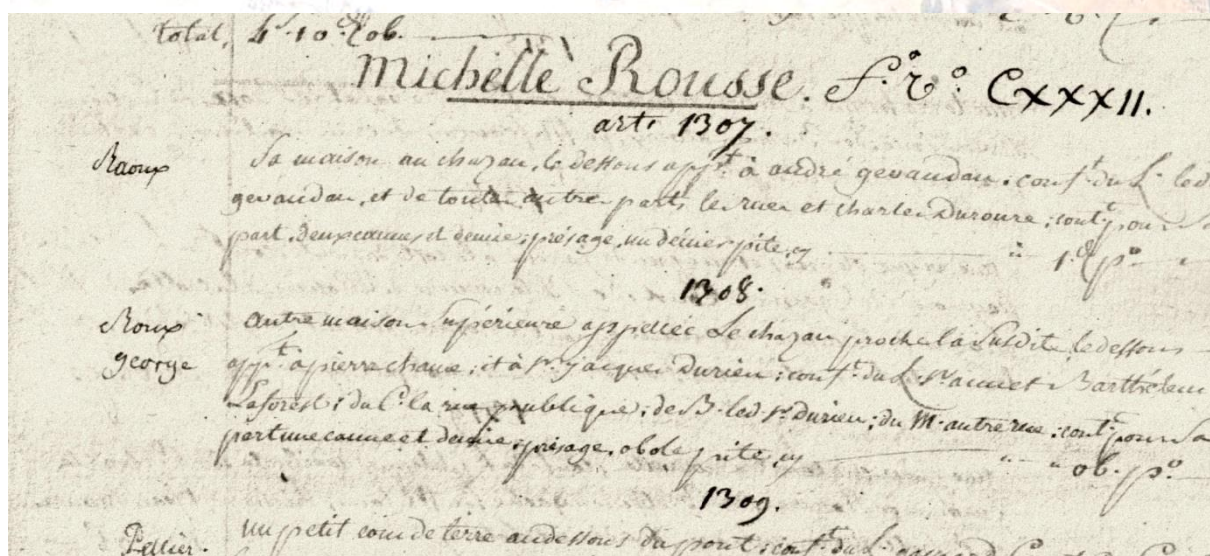 total, 4 10 ob.
Michelle Rousse. f.º r.º CXXXII.
art. 1307.
Raoux
Sa maison au chazau, le dessous app.t à andré gevaudan; conf.t du L. led
gevaudan, et de toutes autres parts les rues et charles Duroure; cont.t pour sa
part, deux cannes et demie; présage, un dénier pite, cy " 1.d p.º
1308.
Roux
george
autre maison supérieure appellée Le chazau proche la susdite, le dessous
app.t à pierre chauve, et à s.r jacques Durieu; conf.t du L. s.r annet Barthélemi
Laforest; du C. la rue publique; de B. led. s.r durieu; du M. autre rue; cont.t pour sa
part une canne et demie; présage, obole pite, cy " " ob. p.º
1309.
Pellier.
un petit coin de terre au dessous du pont; conf.t du L.